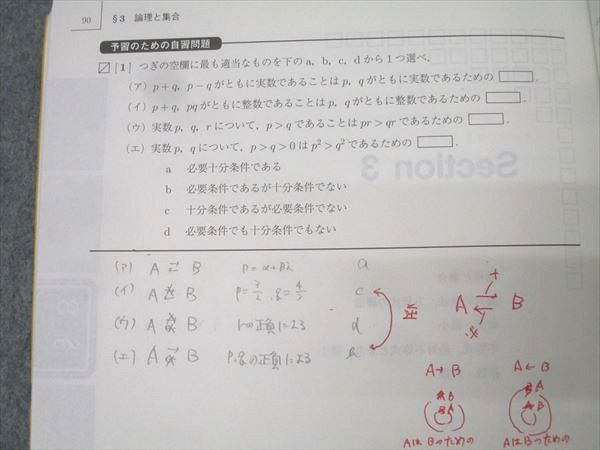 90 §3 論理と集合
予習のための自習問題
[1] つぎの空欄に最も適当なものを下の a, b, c, d から1つ選べ.
(ア) p+q, p−q がともに実数であることは p, q がともに実数であるための .
(イ) p+q, pq がともに整数であることは p, q がともに整数であるための .
(ウ) 実数 p, q, r について, p>q であることは pr>qr であるための .
(エ) 実数 p, q について, p>q>0 は p²>q² であるための .
a 必要十分条件である
b 必要条件であるが十分条件でない
c 十分条件であるが必要条件でない
d 必要条件でも十分条件でもない
Section 3
(ア) A ⇄ B p=α+βi a
(イ) A B c
(ウ) A B rの正負による d
(エ) A B p, qの正負による
逆
A B
A→B A←B
AはBのための AはBのための